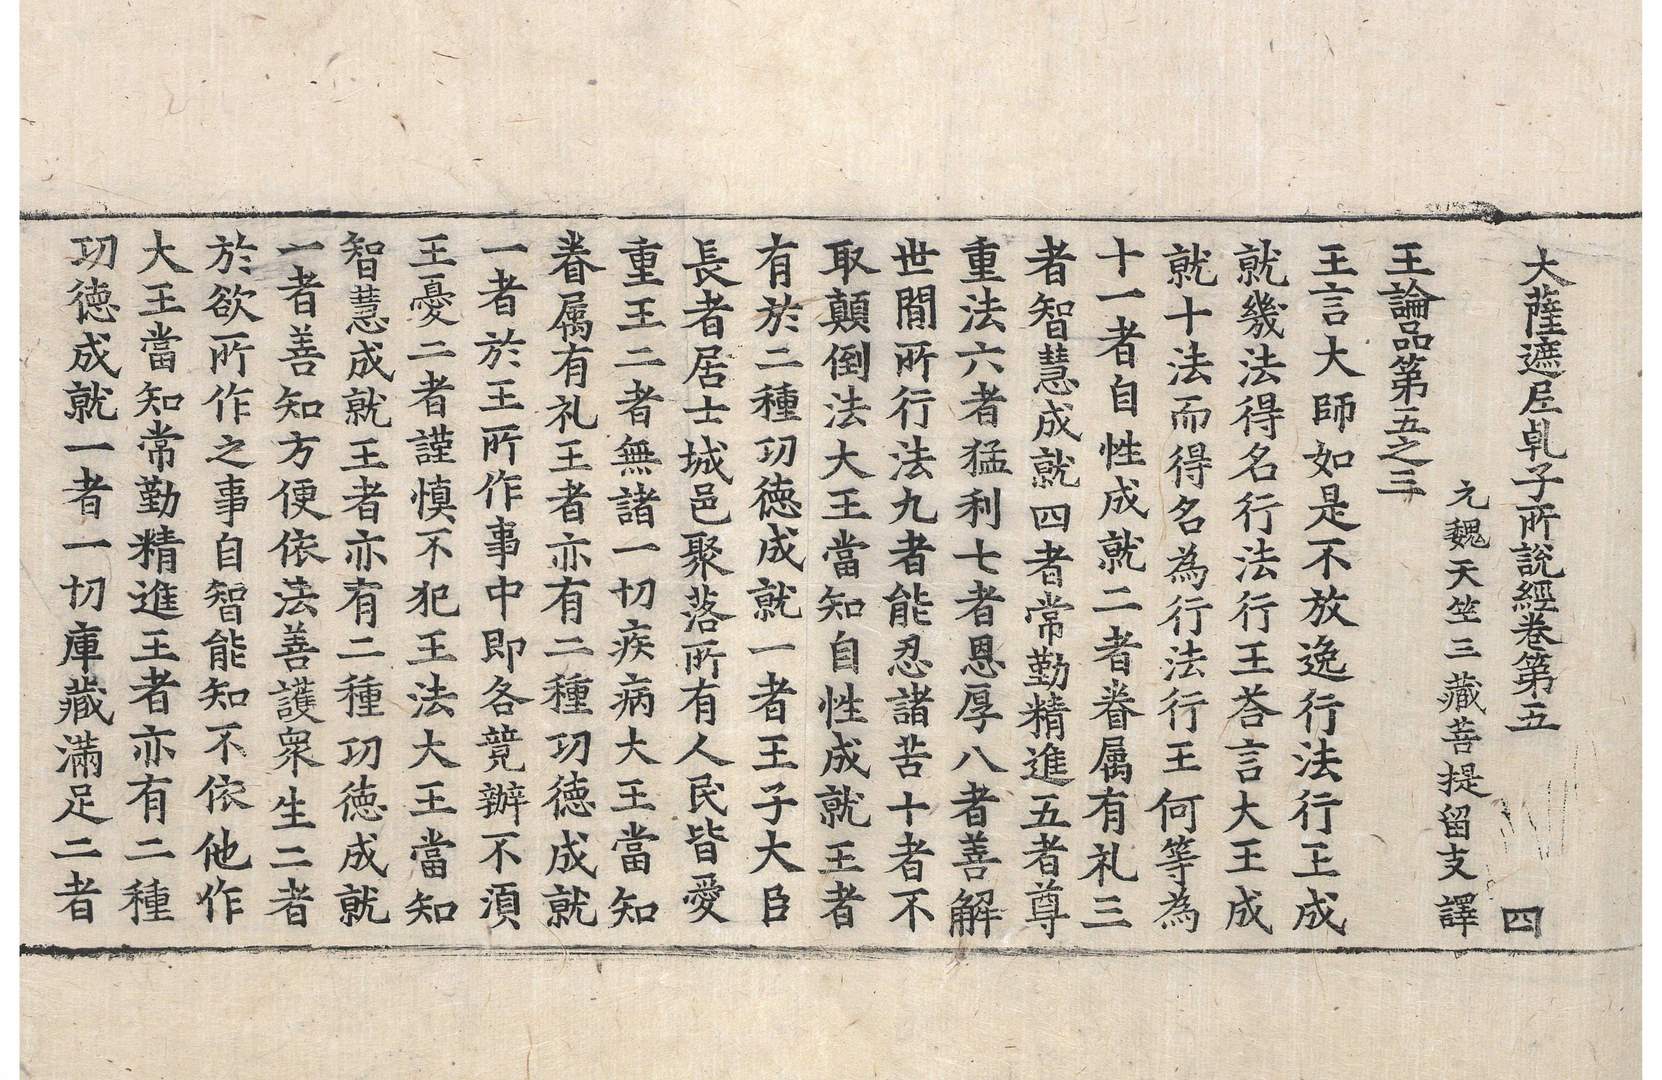 大薩遮尼乹子所說經卷第五　四
元魏天竺三藏菩提留支譯
王論品第五之三
王言大師如是不放逸行法行王成
就幾法得名行法行王荅言大王成
就十法而得名為行法行王何等為
十一者自性成就二者眷属有礼三
者智慧成就四者常勤精進五者尊
重法六者猛利七者恩厚八者善解
世間所行法九者能忍諸苦十者不
取顛倒法大王當知自性成就王者
有於二種功徳成就一者王子大臣
長者居士城邑聚落所有人民皆愛
重王二者無諸一切疾病大王當知
眷属有礼王者亦有二種功徳成就
一者於王所作事中即各競辦不湏
王憂二者謹慎不犯王法大王當知
智慧成就王者亦有二種功徳成就
一者善知方便依法善護衆生二者
於欲所作之事自智能知不依他作
大王當知常勤精進王者亦有二種
功徳成就一者一切庫藏滿足二者